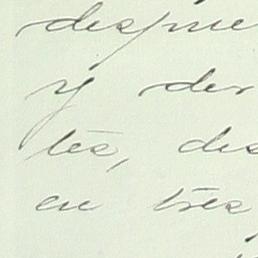 despue
y der
tes, des
en tres